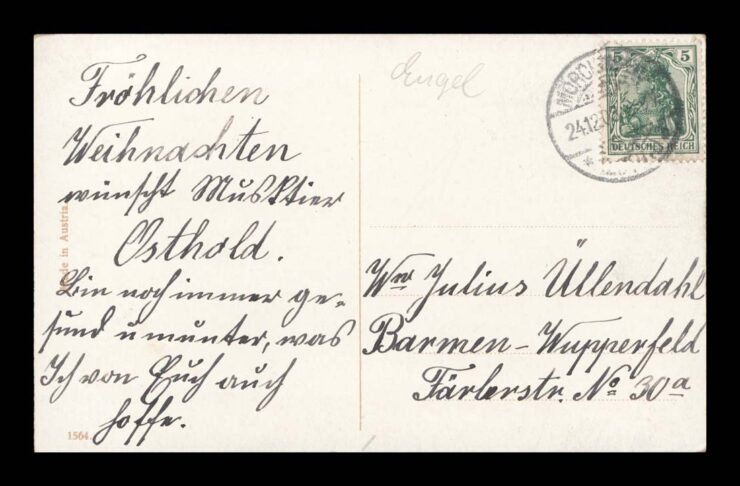 Fröhlichen
Weihnachten
wünscht Musktier
Osthold.
Bin noch immer ge-
sund u munter, was
Ich von Euch auch
hoffe.
Made in Austria
1564.
Engel
5 5
DEUTSCHES REICH
24.12.0
Wwe Julius Üllendahl
Barmen-Wupperfeld
Färberstr. No 30a